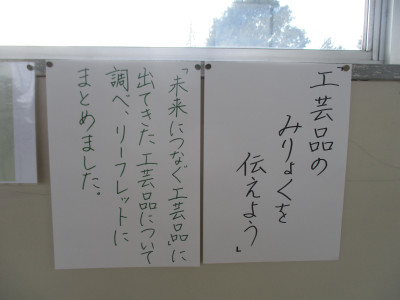 工芸品の
みりょくを
伝えよう」
「未来につなぐ工芸品」に
出てきた工芸品について
調べ、リーフレットに
まとめました。